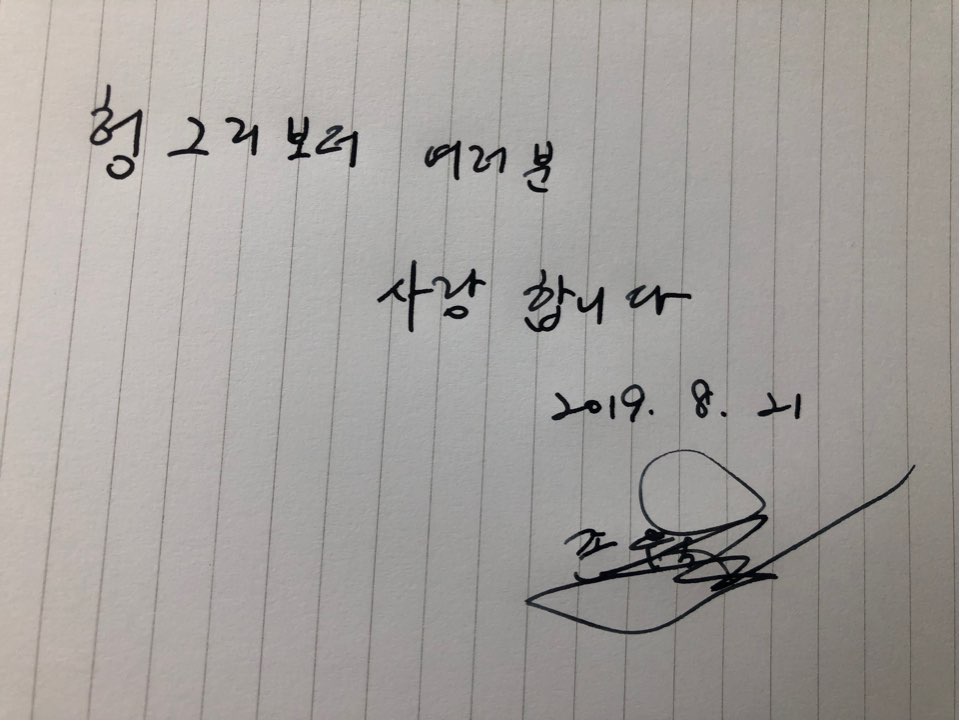 헝그리보더 여러분
사랑합니다
2019. 8. 21